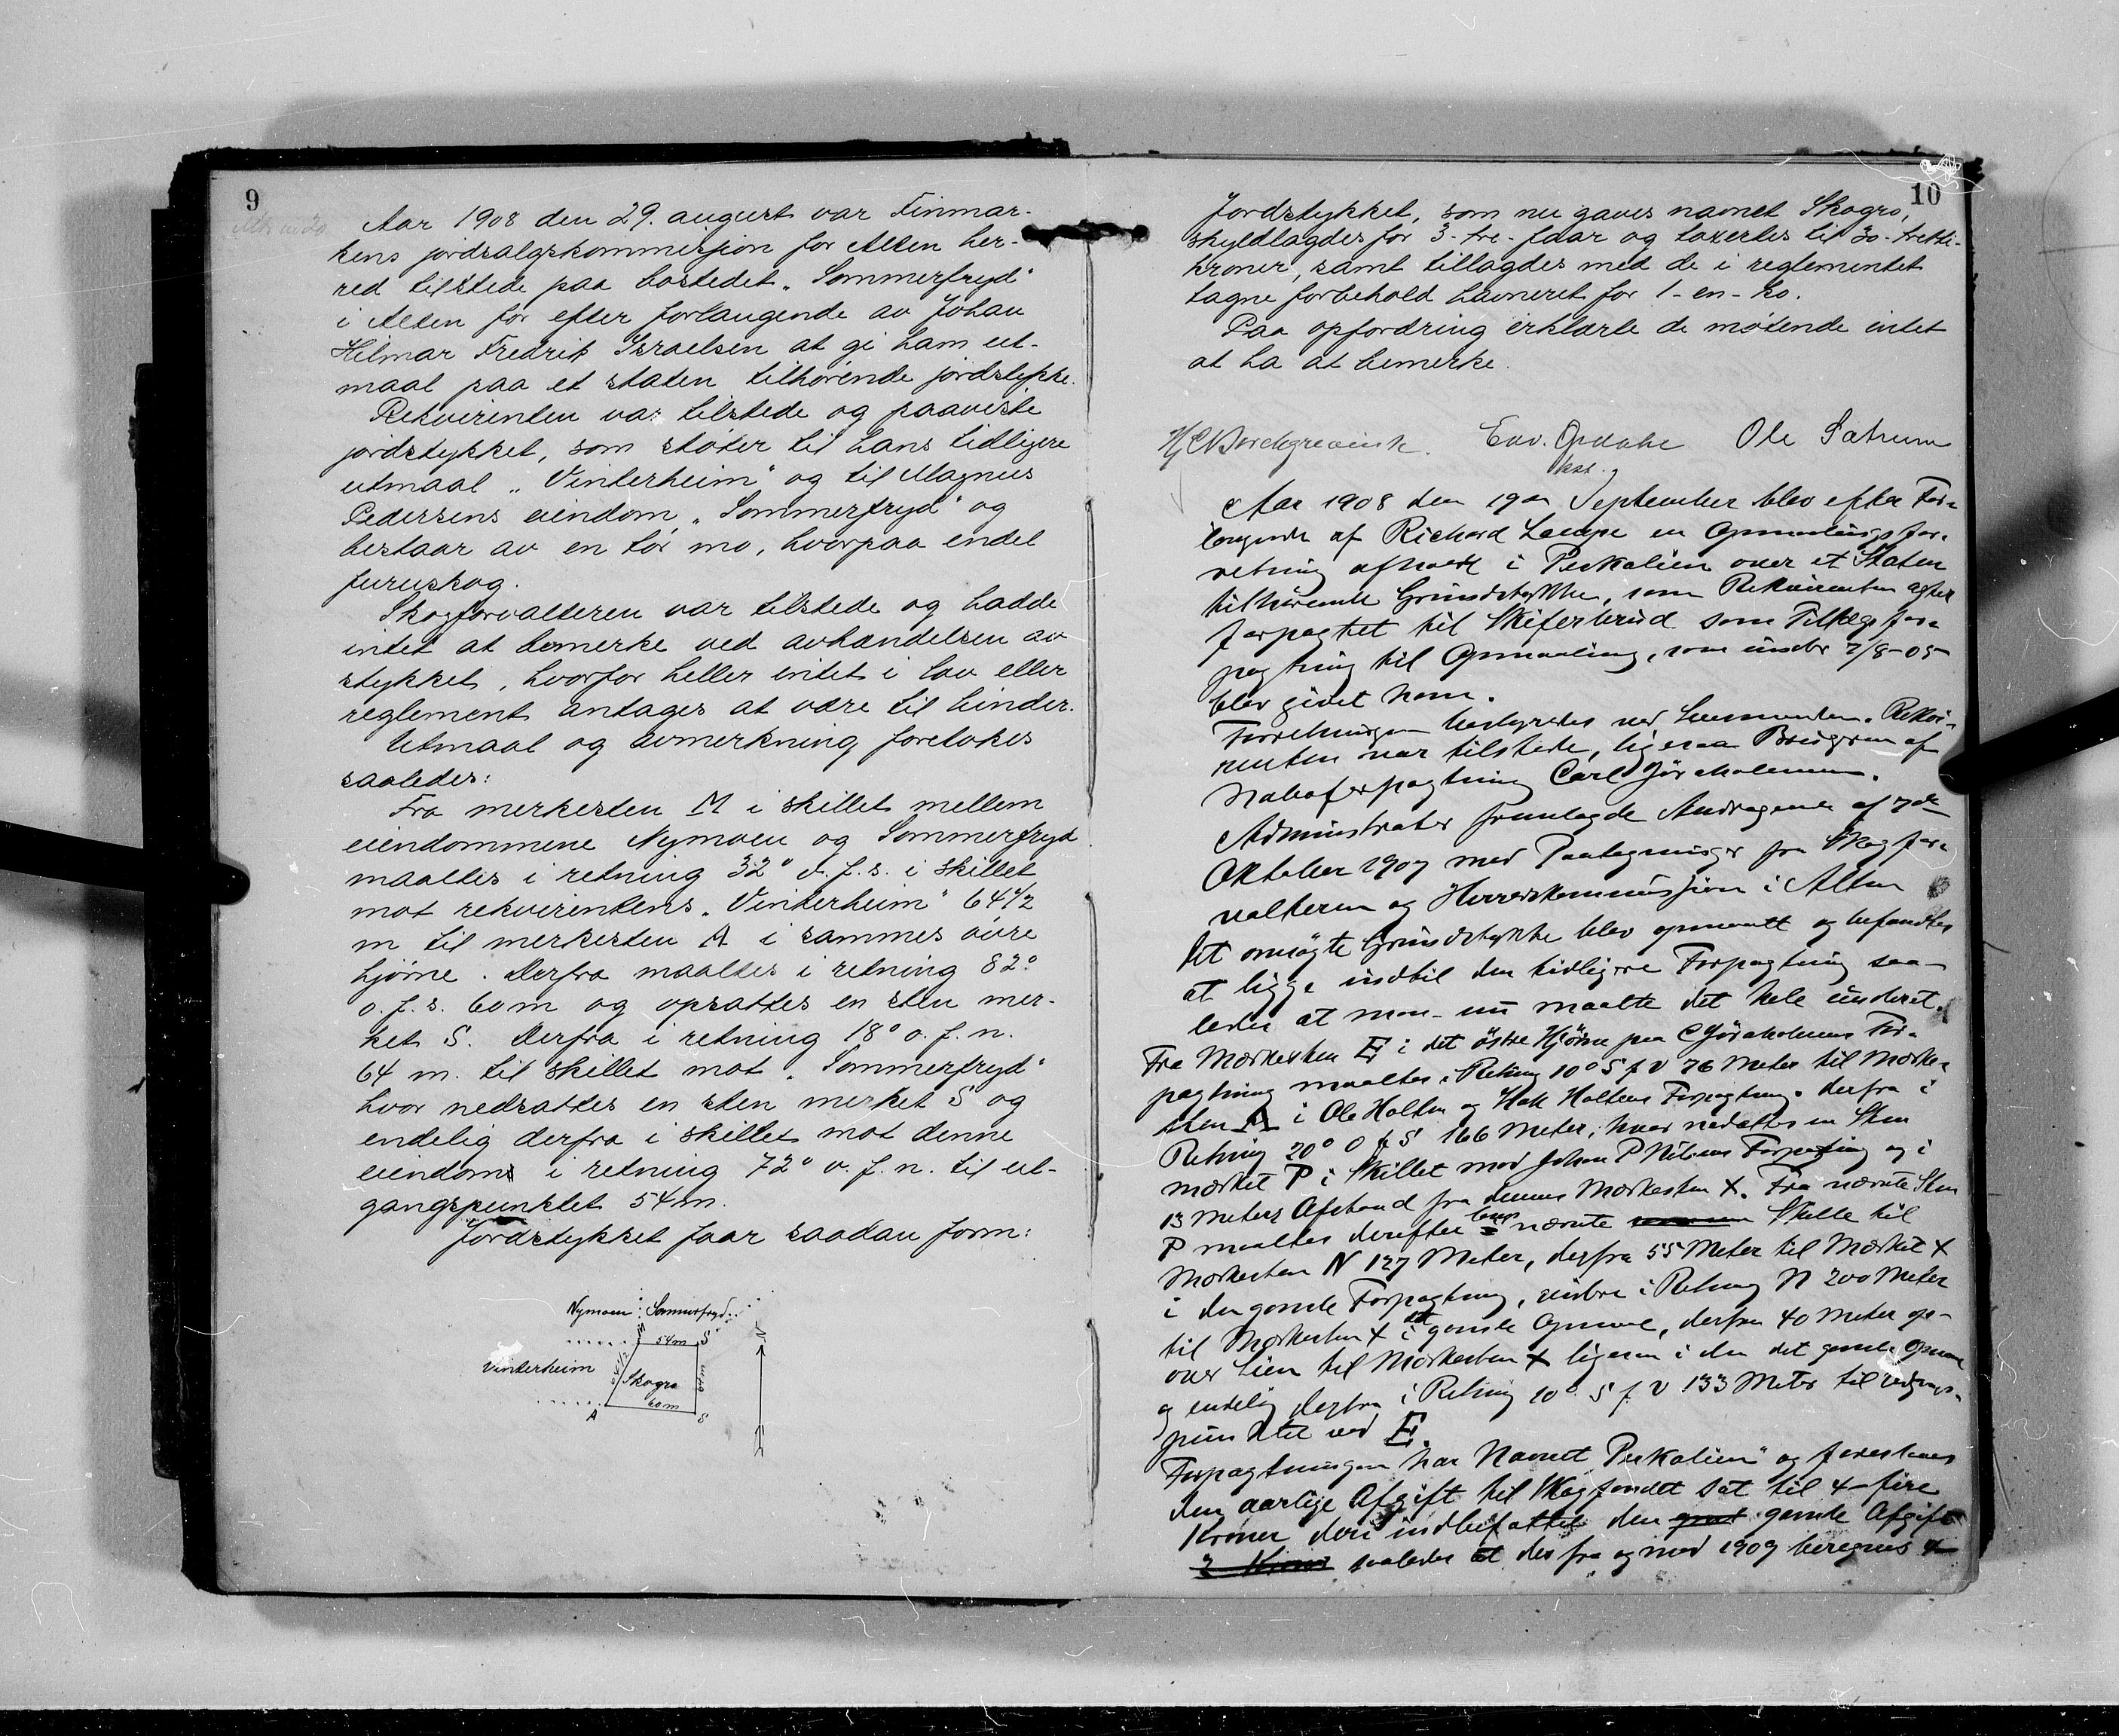 9
Aar 1908 den 29. august var Finmar-
kens jordsalgskommisjon for Alten her-
red tilstede paa bostedet „Sommerfryd"
i Alten for efter forlangende av Johan
Hilmar Fredrik Israelsen at gi ham ut-
maal paa et staten tilhørende jordstykke.
Rekvirenten var tilstede og paaviste
jordstykket, som støter til hans tidligere
utmaal „Vinterheim" og til Magnus
Pedersens eiendom „Sommerfryd" og
bestaar av en tør mo, hvorpaa endel
furuskog.
Skogforvalteren var tilstede og hadde
intet at bemerke ved avhændelsen av
stykket, hvorfor heller intet i lov eller
reglement antages at være til hinder.
Utmaal og avmerkning foretokes
saaledes:
Fra merkesten M i skillet mellem
eiendommene Nymoen og Sommerfryd
maaltes i retning 32° v. f. s. i skillet
mot rekvirentens „Vinterheim" 64 1/2
m til merkesten A i sammes øvre
hjørne. Derfra maaltes i retning 82°
o. f. s. 60 m og opsattes en sten mer-
ket S. Derfra i retning 18° o. f. n.
64 m. til skillet mot „Sommerfryd"
hvor nedsattes en sten merket S og
endelig derfra i skillet mot denne
eiendom i retning 72° v. f. n. til ut-
gangspunktet 54 m.
Jordstykket faar saadan form:
Nymoen Sommerfryd
M 54 m S
Vinterheim 64 1/2 Skogro 64 m
60 m
A S
N
10
Jordstykket, som nu gaves navnet Skogro,
skyldlagdes for 3 - tre - øre og taxertes til 30 - tretti -
kroner, samt tillagdes med de i reglementet
tagne forbehold havneret for 1 - en - ko.
Paa opfordring erklærte de møtende intet
at ha at bemerke.
H C Borchgrevink. Edv. Opdahl Ole Sætrum
Aar 1908 den 19de September blev efter For-
langende af Richard Lampe en Opmaalingsfor-
retning afholdt i Peskalien over et Staten
tilhørende Grundstykke, som Rekvirenten agter
forpagtet til Skiferbrud som Tillægsfor-
pagtning til Opmaaling, som under 7/8-05
blev givet ham.
Forretningen bestyredes ved Lensmanden. Rekvi-
renten var tilstede, ligesaa Brugeren af
Naboforpagtning Carl Jøraholmen.
Administrator fremlagde Andragende af 7de
Oktober 1907 med Paategninger fra Skogfor-
valteren og Herredskommissjon i Alten
Det omsøgte Grundstykke blev opmaalt og befandtes
at ligge indtil den tidligere Forpagtning saa-
ledes at man nu maalte det hele underet.
Fra Mærkesten E i det østre Hjørne paa C Jøraholmens For-
pagtning maaltes i Retning 10° S f V 76 Meter til Mærke-
sten A i Ole Holten og Hak Holtens Forpagtning. Derfra i
Retning 20° O f S 166 Meter, hvor nedsattes en Sten
mærket P i Skillet mod Johan P Nilsens Forpagtning og i
13 Meters Afstand fra dennes Mærkesten X. Fra nævnte Sten
P maaltes derefter langs nævnte Skille til
Mærkesten N 127 Meter, derfra 55 Meter til Mærket X
i den gamle Forpagtning, videre i Retning N 200 Meter
til Mærkesten X i det gamle Opmaal, derfra 40 Meter op-
over Lien til Mærkesten X ligesaa i det gamle Opmaal
og endelig derfra i Retning 10° S f V 133 Meter til Udgangs-
punktet ved E.
Forpagtningen har Navnet Peskalien" og foreslaaes
den aarlige Afgift til Skogfondet sat til 4 - fire
Kroner deri indbefattet den gamle Afgift
2 Kroner saaledes at der fra og med 1909 beregnes 4